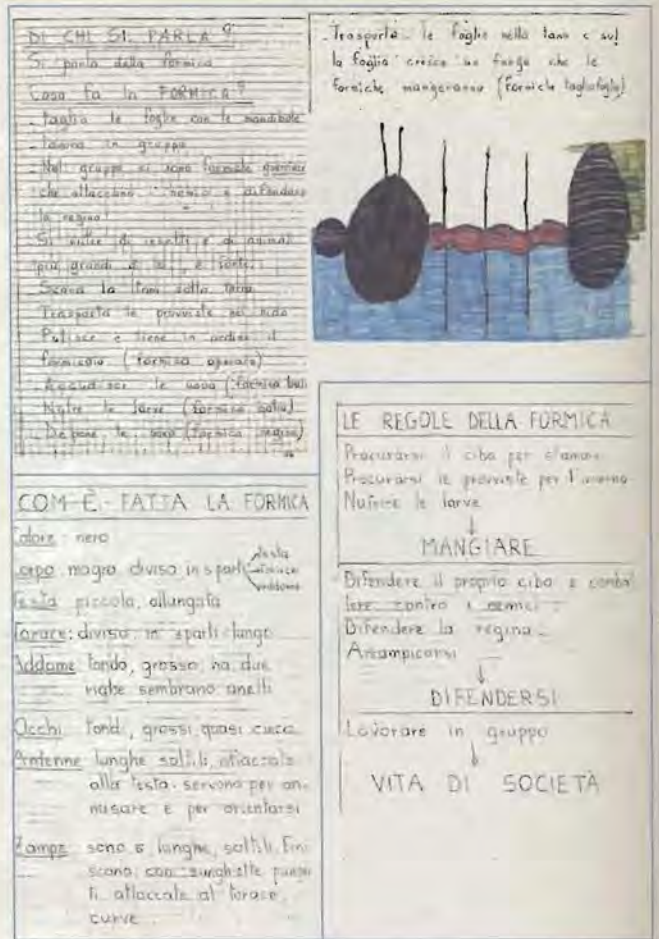 DI CHI SI PARLA?
Si parla della formica
Cosa fa la FORMICA?
- Taglia le foglie con le mandibole
- Lavora in gruppo
- Nel gruppo ci sono formiche guerriere
che attaccano i nemici e difendono
la regina
Si nutre di insetti e di animali
più grandi di lei, è forte.
Scava la tana sotto terra
Trasporta le provviste nel nido
Pulisce e tiene in ordine il
formicaio (formica operaia)
- le uova (formica
Nutre le larve (formica balia)
- Depone le uova (formica regina)
- Trasporta le foglie nella tana e sul
la foglia cresce un fungo che le
formiche mangeranno (formiche tagliafoglie)
COM È FATTA LA FORMICA
Colore: nero
Corpo: magro diviso in 3 parti
testa
torace
addome
Testa piccola, allungata
Torace: diviso in 3 parti lungo
Addome tondo, grosso, ha due
righe sembrano anelli
Occhi tondi, grossi, quasi
Antenne lunghe sottili, attaccate
alla testa. servono per an-
nusare e per orientarsi
Zampe sono 6 lunghe, sottili, fini
scono con
ti attaccate al torace
curve
LE REGOLE DELLA FORMICA
Procurarsi il cibo per
Procurarsi le provviste per l'inverno
Nutrire le larve
↓
MANGIARE
Difendere il proprio cibo e comba
tere contro i nemici
Difendere la regina
Arrampicarsi
↓
DIFENDERSI
Lavorare in gruppo
↓
VITA DI SOCIETÀ